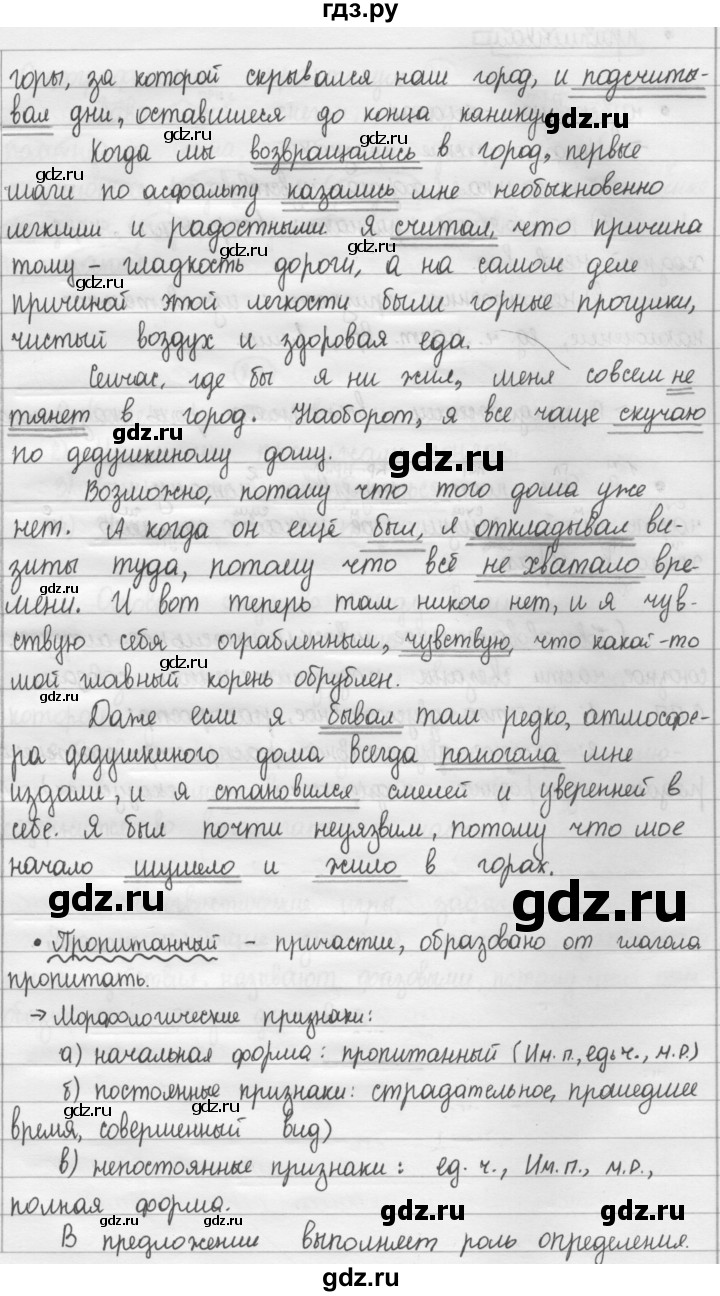 гдз.ру
горы, за которой скрывался наш город, и подсчиты-
вал дни, оставшиеся до конца каникул.
gdz.ru gdz.ru gdz.ru
Когда мы возвращались в город, первые
gdz.ru
шаги по асфальту казались мне необыкновенно
gdz.ru
легкими и радостными. Я считал, что причина
gdz.ru gdz.ru
тому - гладкость дороги, а на самом деле
gdz.ru
причиной этой легкости были горные прогулки,
чистый воздух и здоровая еда.
Сейчас, где бы я ни жил, меня совсем не
тянет в город. Наоборот, я все чаще скучаю
gdz.ru gdz.ru
по дедушкиному дому.
gdz.ru
Возможно, потому что того дома уже
нет. А когда он ещё был, я откладывал ви-
зиты туда, потому что всё не хватало вре-
gdz.ru gdz.ru
мени. И вот теперь там никого нет, и я чув-
ствую себя ограбленным, чувствую, что какой-то
gdz.ru
мой главный корень обрублен.
Даже если я бывал там редко, атмосфе-
gdz.ru
ра дедушкиного дома всегда помогала мне
gdz.ru gdz.ru
издали, и я становился смелей и уверенней в
себе. Я был почти неуязвим, потому что мое
gdz.ru
начало шумело и жило в горах.
gdz.ru gdz.ru gdz.ru
• Пропитанный - причастие, образовано от глагола
gdz.ru
пропитать.
→ Морфологические признаки:
а) начальная форма: пропитанный (Им.п., ед.ч., м.р.)
gdz.ru
б) постоянные признаки: страдательное, прошедшее
gdz.ru gdz.ru
время, совершенный вид)
в) непостоянные признаки: ед.ч., Им.п., м.р.,
полная форма.
gdz.ru gdz.ru gdz.ru
В предложении выполняет роль определения.
gdz.ru
gdz.ru